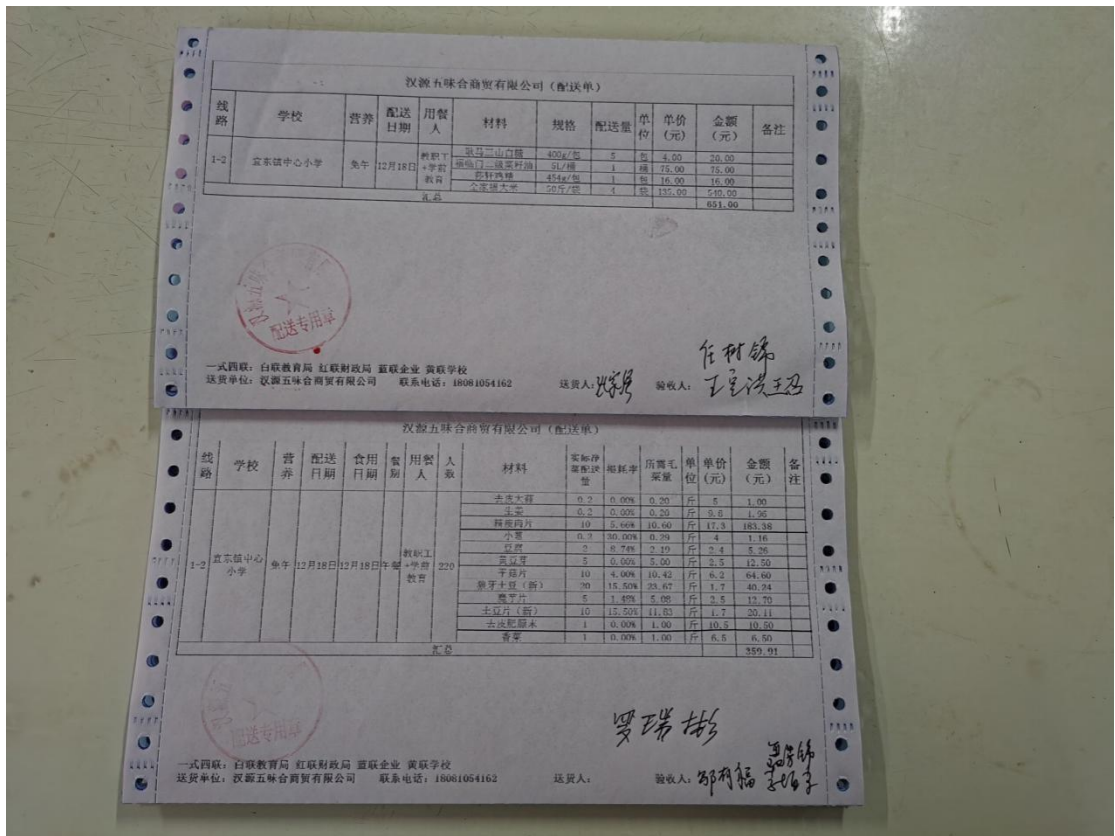 汉源五味合商贸有限公司（配送单）
线路 学校 营养 配送日期 用餐人 材料 规格 配送量 单位 单价（元） 金额（元） 备注
1-2 宜东镇中心小学 免午 12月18日 教职工+学前教育
白糖 400g/包 5 包 4.00 20.00
福临门二级菜籽油 5L/桶 1 桶 75.00 75.00
鸡精 454g/包 1 包 16.00 16.00
大米 50斤/袋 4 袋 135.00 540.00
汇总 651.00
配送专用章
一式四联：白联教育局 红联财政局 蓝联企业 黄联学校
送货单位：汉源五味合商贸有限公司 联系电话：18081054162 送货人： 验收人：
任树锦
汉源五味合商贸有限公司（配送单）
线路 学校 营养 配送日期 食用日期 餐别 用餐人 人数 材料 实际净菜配送量 损耗率 所需毛菜量 单位 单价（元） 金额（元） 备注
1-2 宜东镇中心小学 免午 12月18日 12月18日 午餐 教职工+学前教育 220
去皮大蒜 0.2 0.00% 0.20 斤 5 1.00
生姜 0.2 0.00% 0.20 斤
精瘦肉片 10 5.66% 10.60 斤 17.3 183.38
小葱 0.2 30.00% 0.29 斤 4 1.16
2 8.74% 2.19 斤 2.4 5.26
黄豆芽 5 0.00% 5.00 斤 2.5 12.50
10 4.00% 10.42 斤 6.2 64.60
象牙土豆（新） 20 15.50% 23.67 斤 1.7 40.24
魔芋片 5 1.48% 5.08 斤 2.5 12.70
土豆片（新） 10 15.50% 11.83 斤 1.7 20.11
去皮肥膘末 1 0.00% 1.00 斤 10.5 10.50
香菜 1 0.00% 1.00 斤 6.5 6.50
汇总 359.91
配送专用章
罗瑞彬
一式四联：白联教育局 红联财政局 蓝联企业 黄联学校
送货单位：汉源五味合商贸有限公司 联系电话：18081054162 送货人： 验收人：